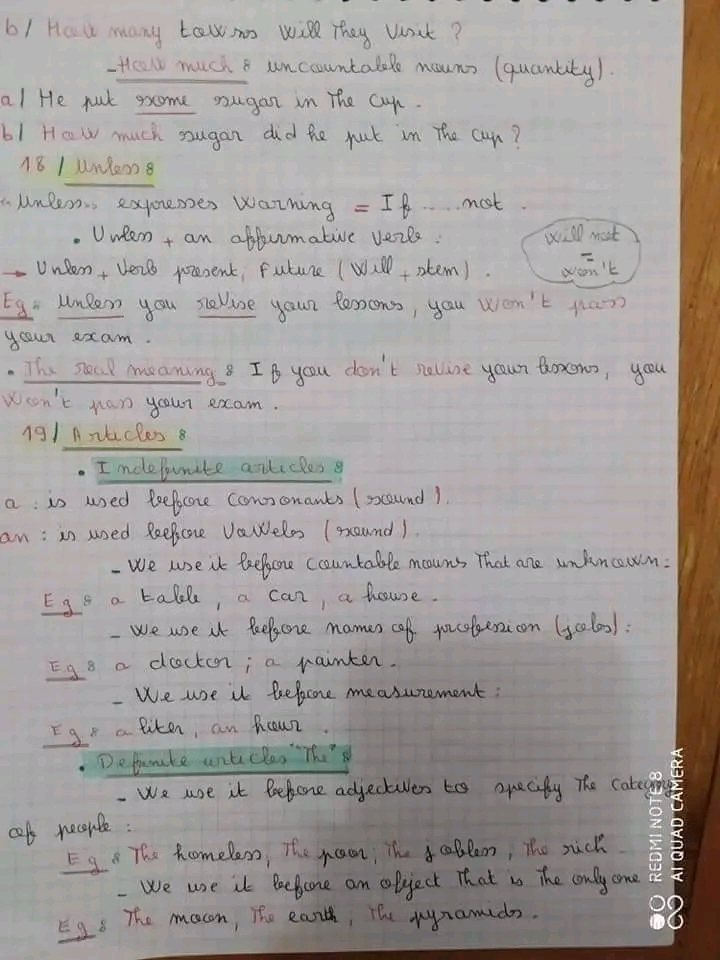 b/ How many towns will they visit ?
- How much : uncountable nouns (quantity).
a/ He put some sugar in the cup .
b/ How much sugar did he put in the cup ?
18/ Unless :
"Unless" expresses warning = If ..... not .
• Unless + an affirmative verb :
will not
=
won't
→ Unless + verb present, future (will + stem) .
Eg : Unless you revise your lessons, you won't pass
your exam .
• The real meaning : If you don't revise your lessons, you
won't pass your exam .
19/ Articles :
• Indefinite articles :
a : is used before consonants (sound).
an : is used before vowels (sound).
- We use it before countable nouns that are unknown :
Eg : a table , a car , a house .
- We use it before names of profession (jobs) :
Eg : a doctor ; a painter .
- We use it before measurement :
Eg : a liter , an hour .
• Definite articles "The" :
- We use it before adjectives to specify the category
of people :
Eg : The homeless, The poor, The jobless, The rich
- We use it before an object that is the only one
Eg : The moon, The earth, The pyramids .
REDMI NOTE 8
AI QUAD CAMERA